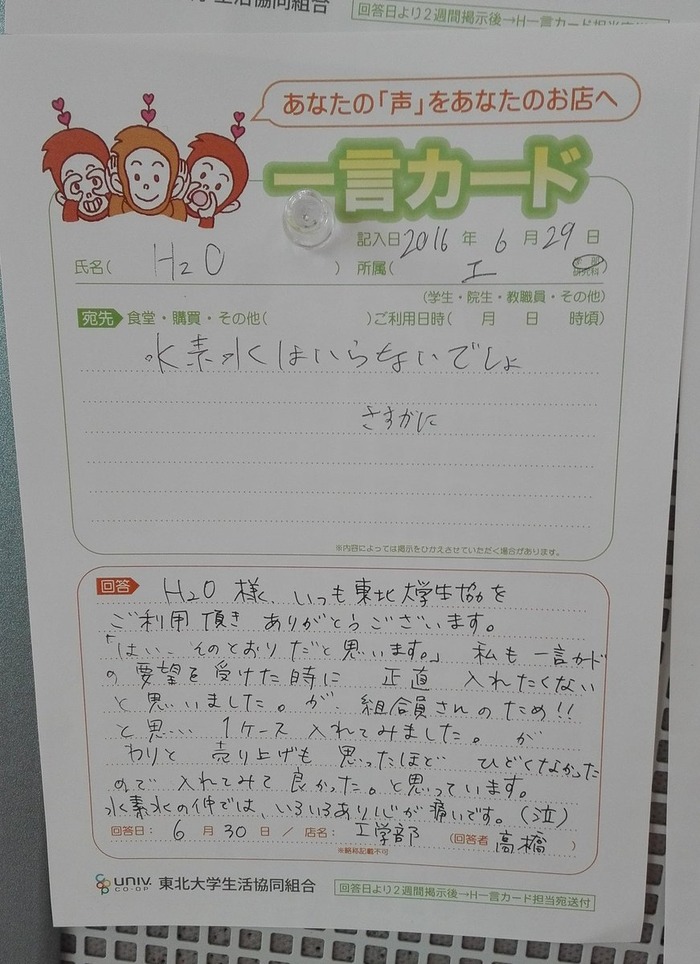 生活協同組合
回答日より2週間掲示後→H一言カード担当
あなたの「声」をあなたのお店へ
一言カード
記入日2016年6月29日
氏名( H2O ) 所属( 工 研究科)
(学生・院生・教職員・その他)
宛先 食堂・購買・その他( )ご利用日時( 月 日 時頃)
水素水はいらないでしょ
さすがに
※内容によっては掲示をひかえさせていただく場合があります。
回答 H2O 様、いつも東北大学生協を
ご利用頂きありがとうございます。
「はい… そのとおりだと思います。」 私も一言カード
の要望を受けた時に 正直 入れたくない
と思いました。が、組合員さんのため!!
と思い 1ケース 入れてみました。が
わりと 売り上げも 思ったほど ひどくなかった
ので 入れてみて良かった。と思っています。
水素水の件では、いろいろあり心が痛いです。(泣)
回答日: 6月30日/店名: 工学部 (回答者 高橋 )
※略称記載不可
UNIV. CO-OP 東北大学生活協同組合 回答日より2週間掲示後→H一言カード担当宛送付